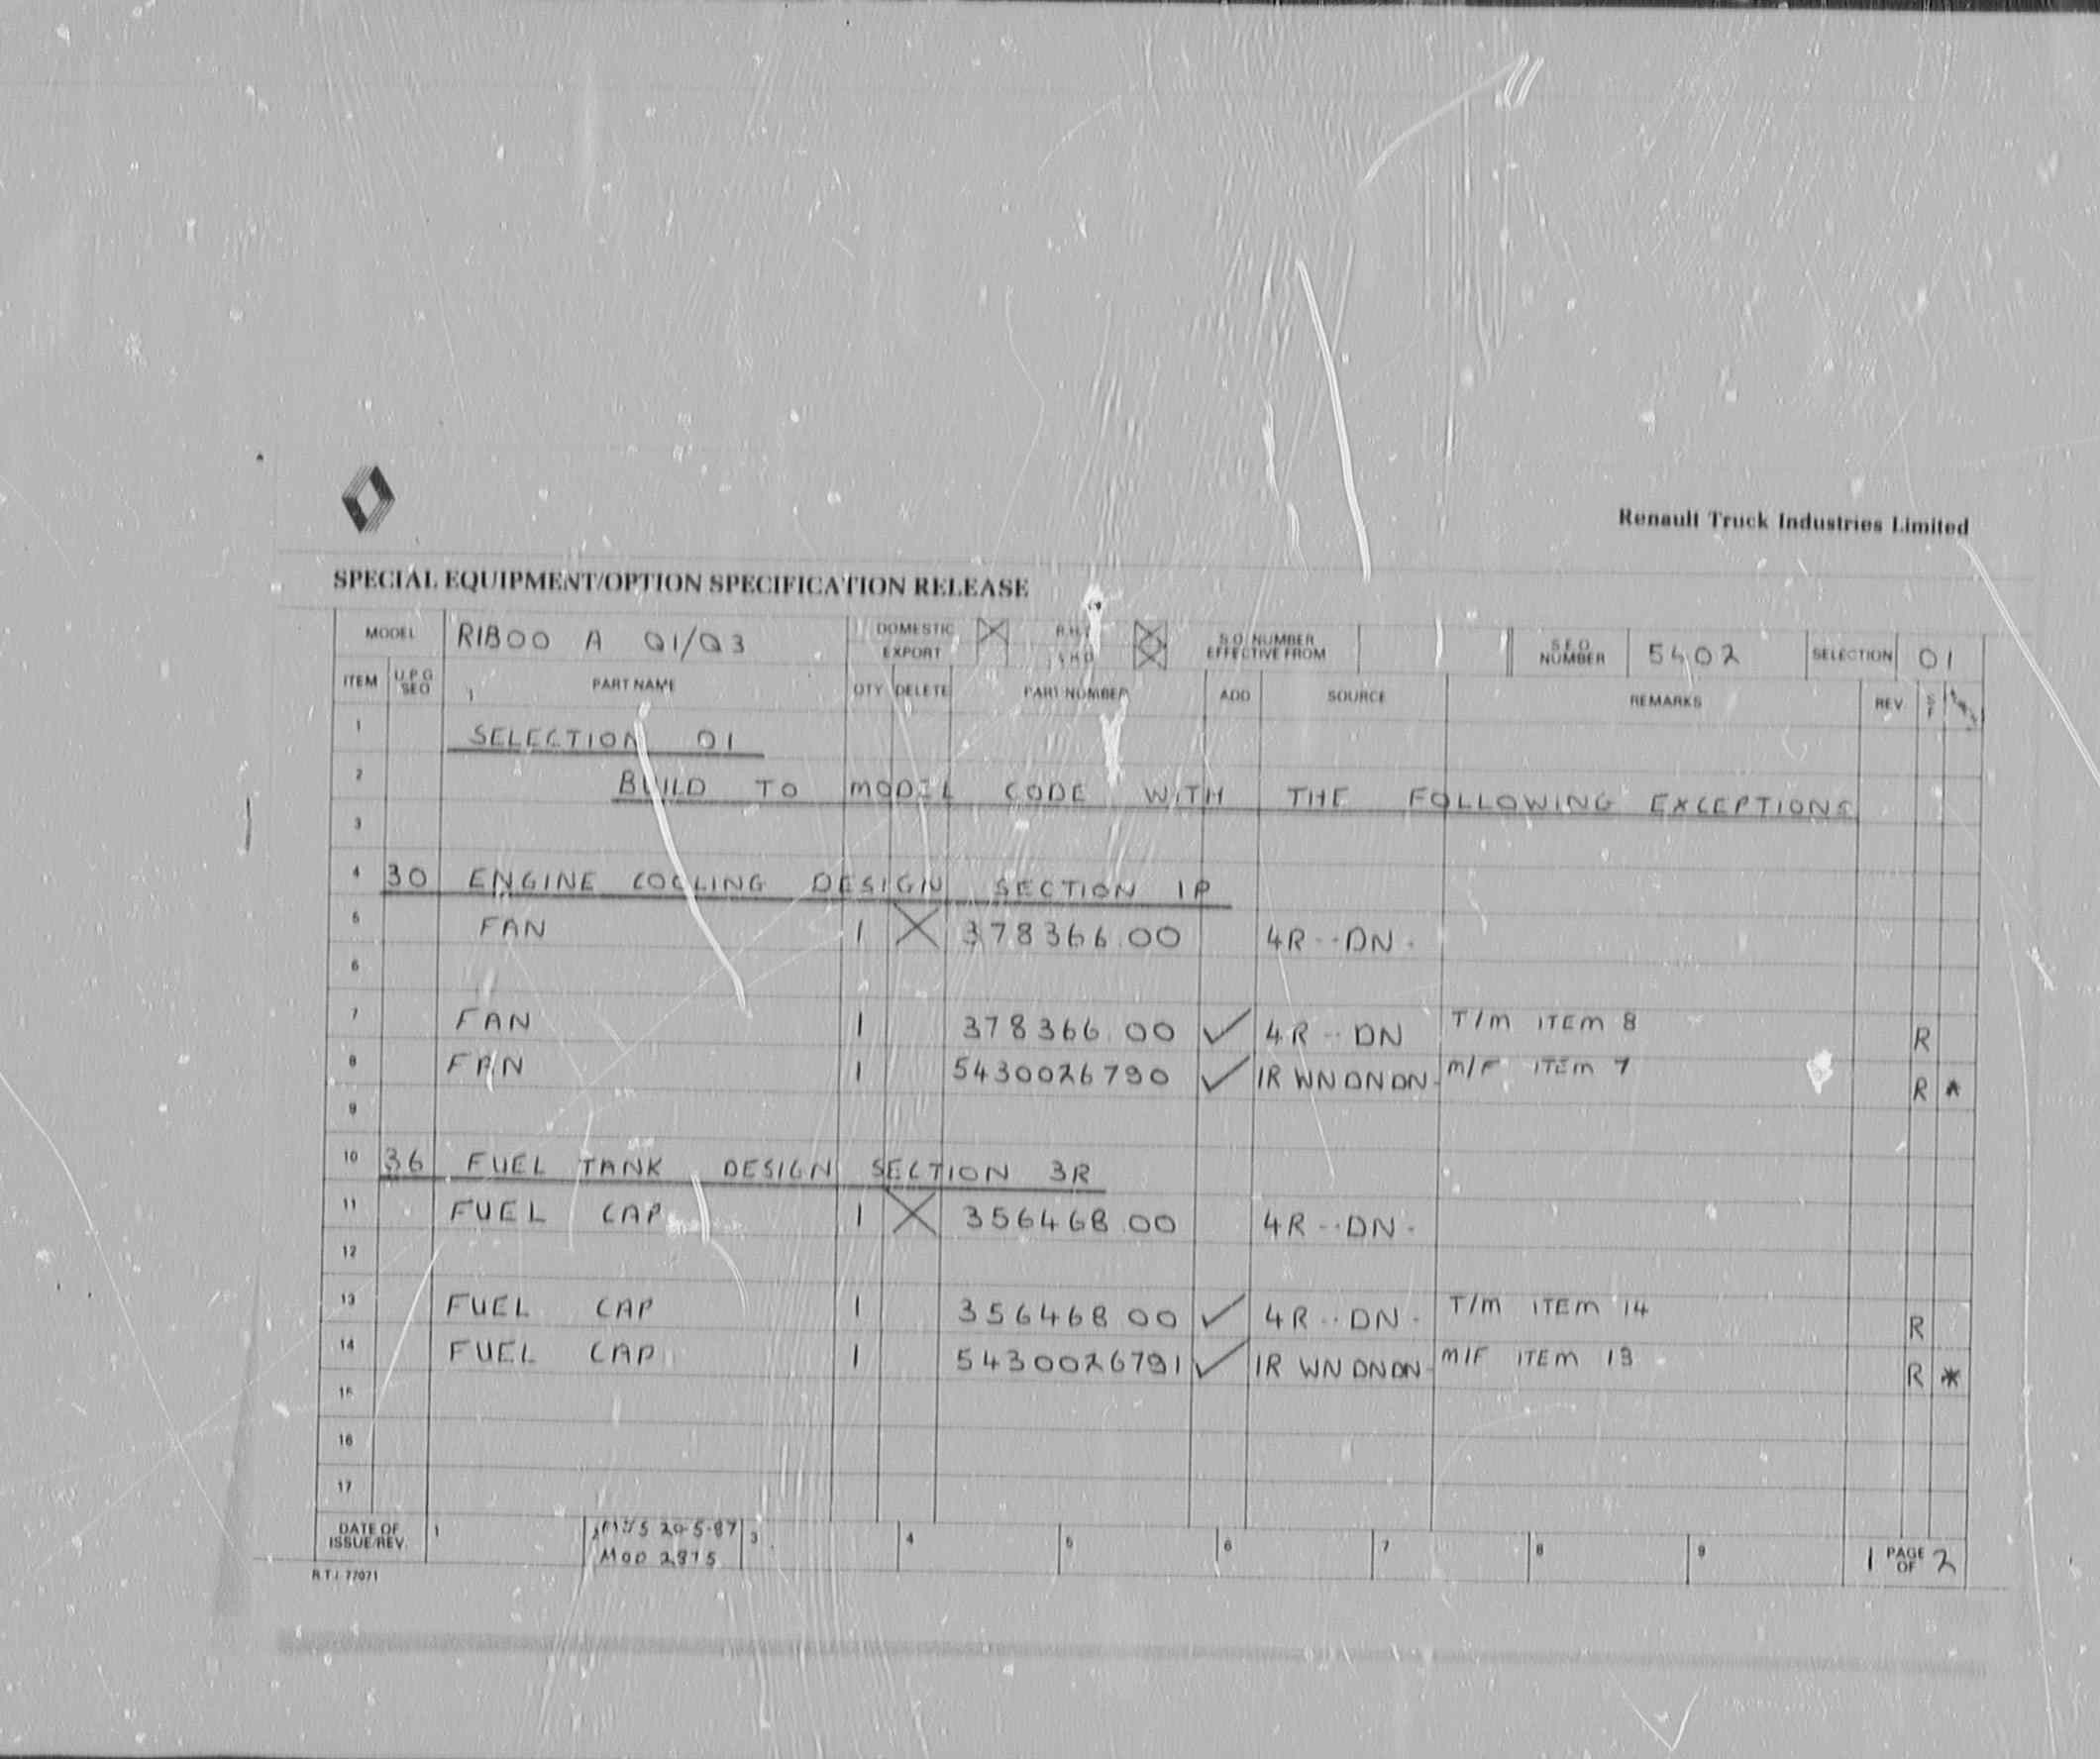 Renault Truck Industries Limited
SPECIAL EQUIPMENT/OPTION SPECIFICATION RELEASE
MODEL R1B00 A Q1/Q3 DOMESTIC EXPORT S.O. NUMBER EFFECTIVE FROM S.E.O. NUMBER 5402 SELECTION 01
ITEM U.P.G SEQ PART NAME QTY DELETE PART NUMBER ADD SOURCE REMARKS REV
1 SELECTION 01
2 BUILD TO MODEL CODE WITH THE FOLLOWING EXCEPTIONS
3
4 30 ENGINE COOLING DESIGN SECTION 1P
5 FAN 1 378366.00 4R--DN-
6
7 FAN 1 378366.00 ✓ 4R--DN T/M ITEM 8 R
8 FAN 1 5430026790 ✓ 1R WN DN DN- M/F ITEM 7 R *
9
10 36 FUEL TANK DESIGN SECTION 3R
11 FUEL CAP 1 356468.00 4R--DN-
12
13 FUEL CAP 1 356468 00 ✓ 4R--DN- T/M ITEM 14 R
14 FUEL CAP 1 5430026791 ✓ 1R WN DN DN- M/F ITEM 13 R *
15
16
17
DATE OF ISSUE/REV. 1 20-5-87 3 4 5 6 7 8 9 1 PAGE OF 2
MOD 2815
R.T.I. 77071